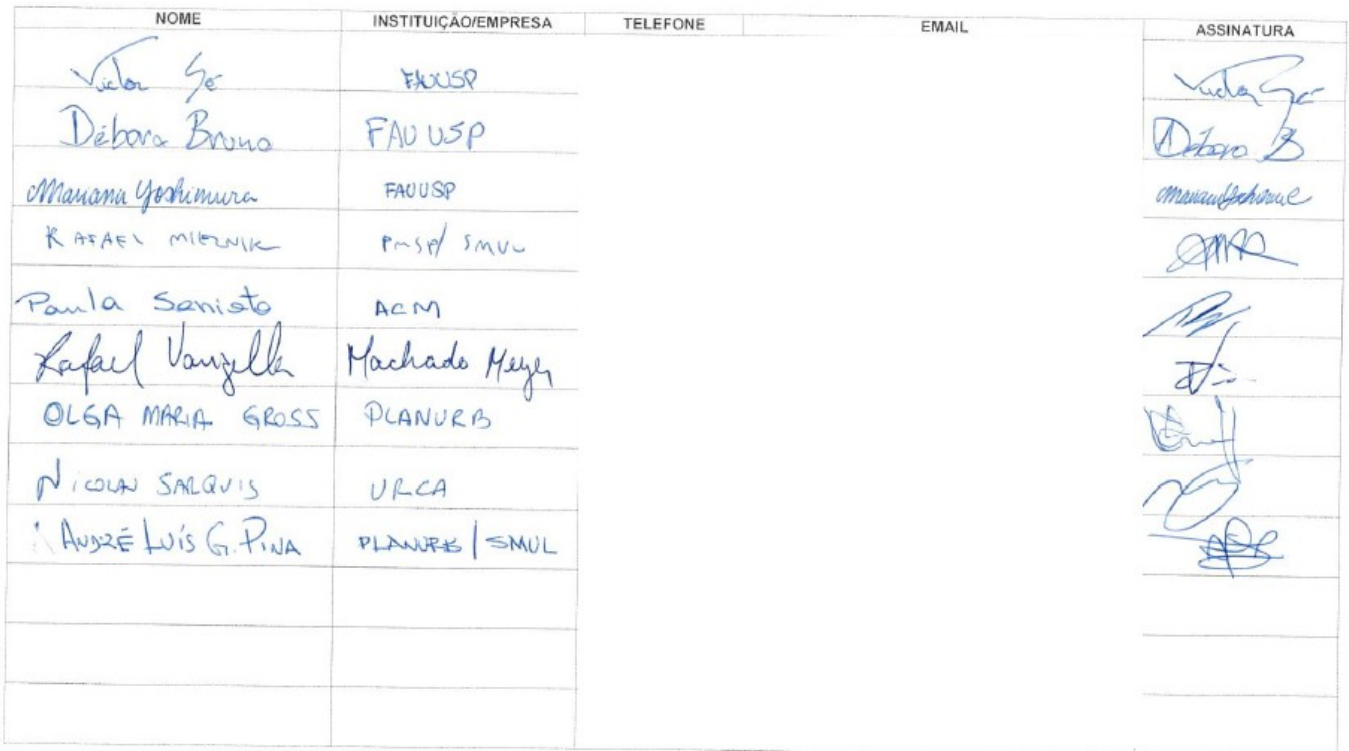 NOME INSTITUIÇÃO/EMPRESA TELEFONE EMAIL ASSINATURA
Victor Sé FAUUSP Victor Sé
Débora Bruno FAU USP Débora B
Mariana Yoshimura FAUUSP Mariana Yoshimura
RAFAEL MIELNIK PMSP/ SMUL
Paula Seni to ACM
Rafael Vanzella Machado Meyer
OLGA MARIA GROSS PLANURB
NICOLAU SARQUIS URCA
ANDRÉ LUÍS G. PINA PLANURB / SMUL